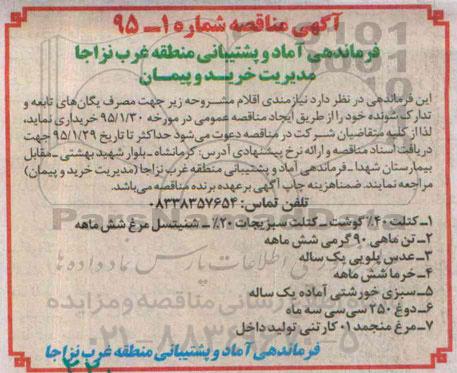 آگهی مناقصه شماره ۱ــ ۹۵
فرماندهی آماد و پشتیبانی منطقه غرب نزاجا
مدیریت خرید و پیمان
این فرماندهی در نظر دارد نیازمندی اقلام مشروحه زیر جهت مصرف یگان‌های تابعه و
تدارک شونده خود را از طریق ایجاد مناقصه عمومی در مورخه ۹۵/۱/۳۰ خریداری نماید،
لذا از کلیه متقاضیان شرکت در مناقصه دعوت می‌شود حداکثر تا تاریخ ۹۵/۱/۲۹ جهت
دریافت اسناد مناقصه و ارائه نرخ پیشنهادی آدرس: کرمانشاه ـ بلوار شهید بهشتی ـ مقابل
بیمارستان شهدا ـ فرماندهی آماد و پشتیبانی منطقه غرب نزاجا (مدیریت خرید و پیمان)
مراجعه نمایند. ضمناً هزینه چاپ آگهی بر عهده برنده مناقصه می‌باشد.
تلفن تماس: ۰۸۳۳۸۳۵۷۶۵۴
۱ـ کتلت ۴۰٪ گوشت ـ کتلت سبزیجات ۲۰٪ ـ شنیتسل مرغ شش ماهه
۲ـ تن ماهی ۹۰ گرمی شش ماهه
۳ـ عدس پلویی یک ساله
۴ـ خرما شش ماهه
۵ـ سبزی خورشتی آماده یک ساله
۶ـ دوغ ۲۵۰ سی سی سه ماه
۷ـ مرغ منجمد ۱۰ کارتنی تولید داخل
فرماندهی آماد و پشتیبانی منطقه غرب نزاجا